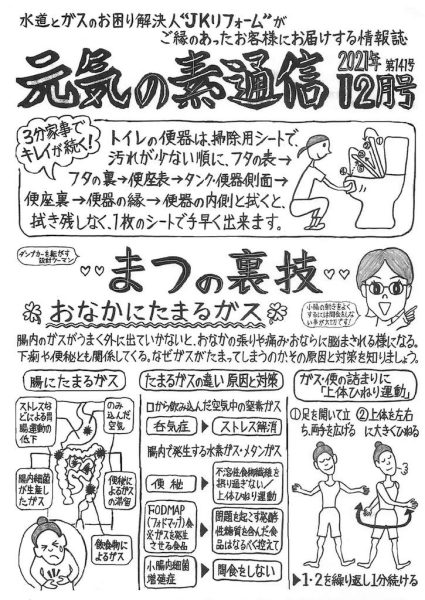 水道とガスのお困り解決人"JKリフォーム"が
ご縁のあったお客様にお届けする情報誌
元気の素通信
2021年
第141号
12月号
3分家事で
キレイが続く!
トイレの便器は、掃除用シートで、
汚れが少ない順に、フタの表→
フタの裏→便座表→タンク・便器側面→
便座裏→便器の縁→便器の内側と拭くと、
拭き残しなく、1枚のシートで手早く出来ます。
まつの裏技
おなかにたまるガス
小腸の動きをよく
するには間食をしな
い事が大切です!
腸内のガスがうまく外に出ていかないと、おなかの張りや痛み・おならに悩まされる様になる。
下痢や便秘とも関係してくる。なぜガスがたまってしまうのかその原因と対策を知りましょう。
腸にたまるガス
ストレス
などによる胃
腸運動の
低下
のみ
込んだ
空気
腸内細菌
が生産し
たガス
便秘に
よるガス
の滞留
飲食物による
ガス
たまるガスの違い 原因と対策
口から飲み込んだ空気中の窒素ガス
呑気症→ストレス解消
腸内で発生する水素ガス・メタンガス
便秘→
不溶性食物繊維を
摂り過ぎない/
上体ひねり運動
FODMAP
(フォドマップ)食
※ガスを発生
させる食品
→
問題を起こす発酵
性糖質を含んだ食
品はなるべく控えて
小腸内細菌
増殖症
→間食をしない
ガス・便の詰まりに
「上体ひねり運動」
①足を開いて立
ち、両手を広げる
②上体を左右
に大きくひねる
▶1・2を繰り返し1分続ける